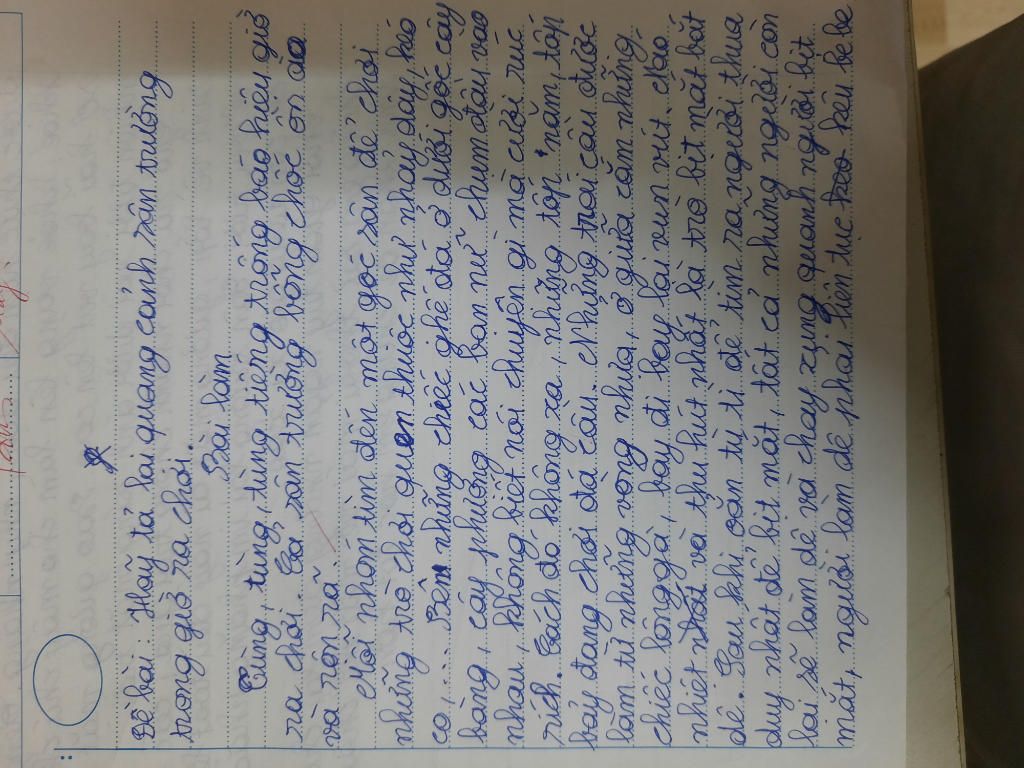 Đề bài: Hãy tả lại quang cảnh sân trường
trong giờ ra chơi.
Bài làm
Tùng, tùng, tùng tiếng trống báo hiệu giờ
ra chơi. Cả sân trường bỗng chốc ồn ào
và rộn rã.
Mỗi nhóm tìm đến một góc sân để chơi
những trò chơi quen thuộc như nhảy dây, kéo
co,... Bên những chiếc ghế đá ở dưới gốc cây
bàng, cây phượng các bạn nữ chụm đầu vào
nhau, không biết nói chuyện gì mà cười rúc
rích. Cách đó không xa, những tốp năm, tốp
bảy đang chơi đá cầu. Những trái cầu được
làm từ những vòng nhựa, ở giữa cắm những
chiếc lông gà, bay đi bay lại vun vút. Náo
nhiệt và thu hút nhất là trò bịt mắt bắt
dê. Sau khi oẳn tù tì để tìm ra người thua
duy nhất để bịt mắt, tất cả những người còn
lại sẽ làm dê và chạy xung quanh người bịt
mắt, người làm dê phải liên tục kêu be be